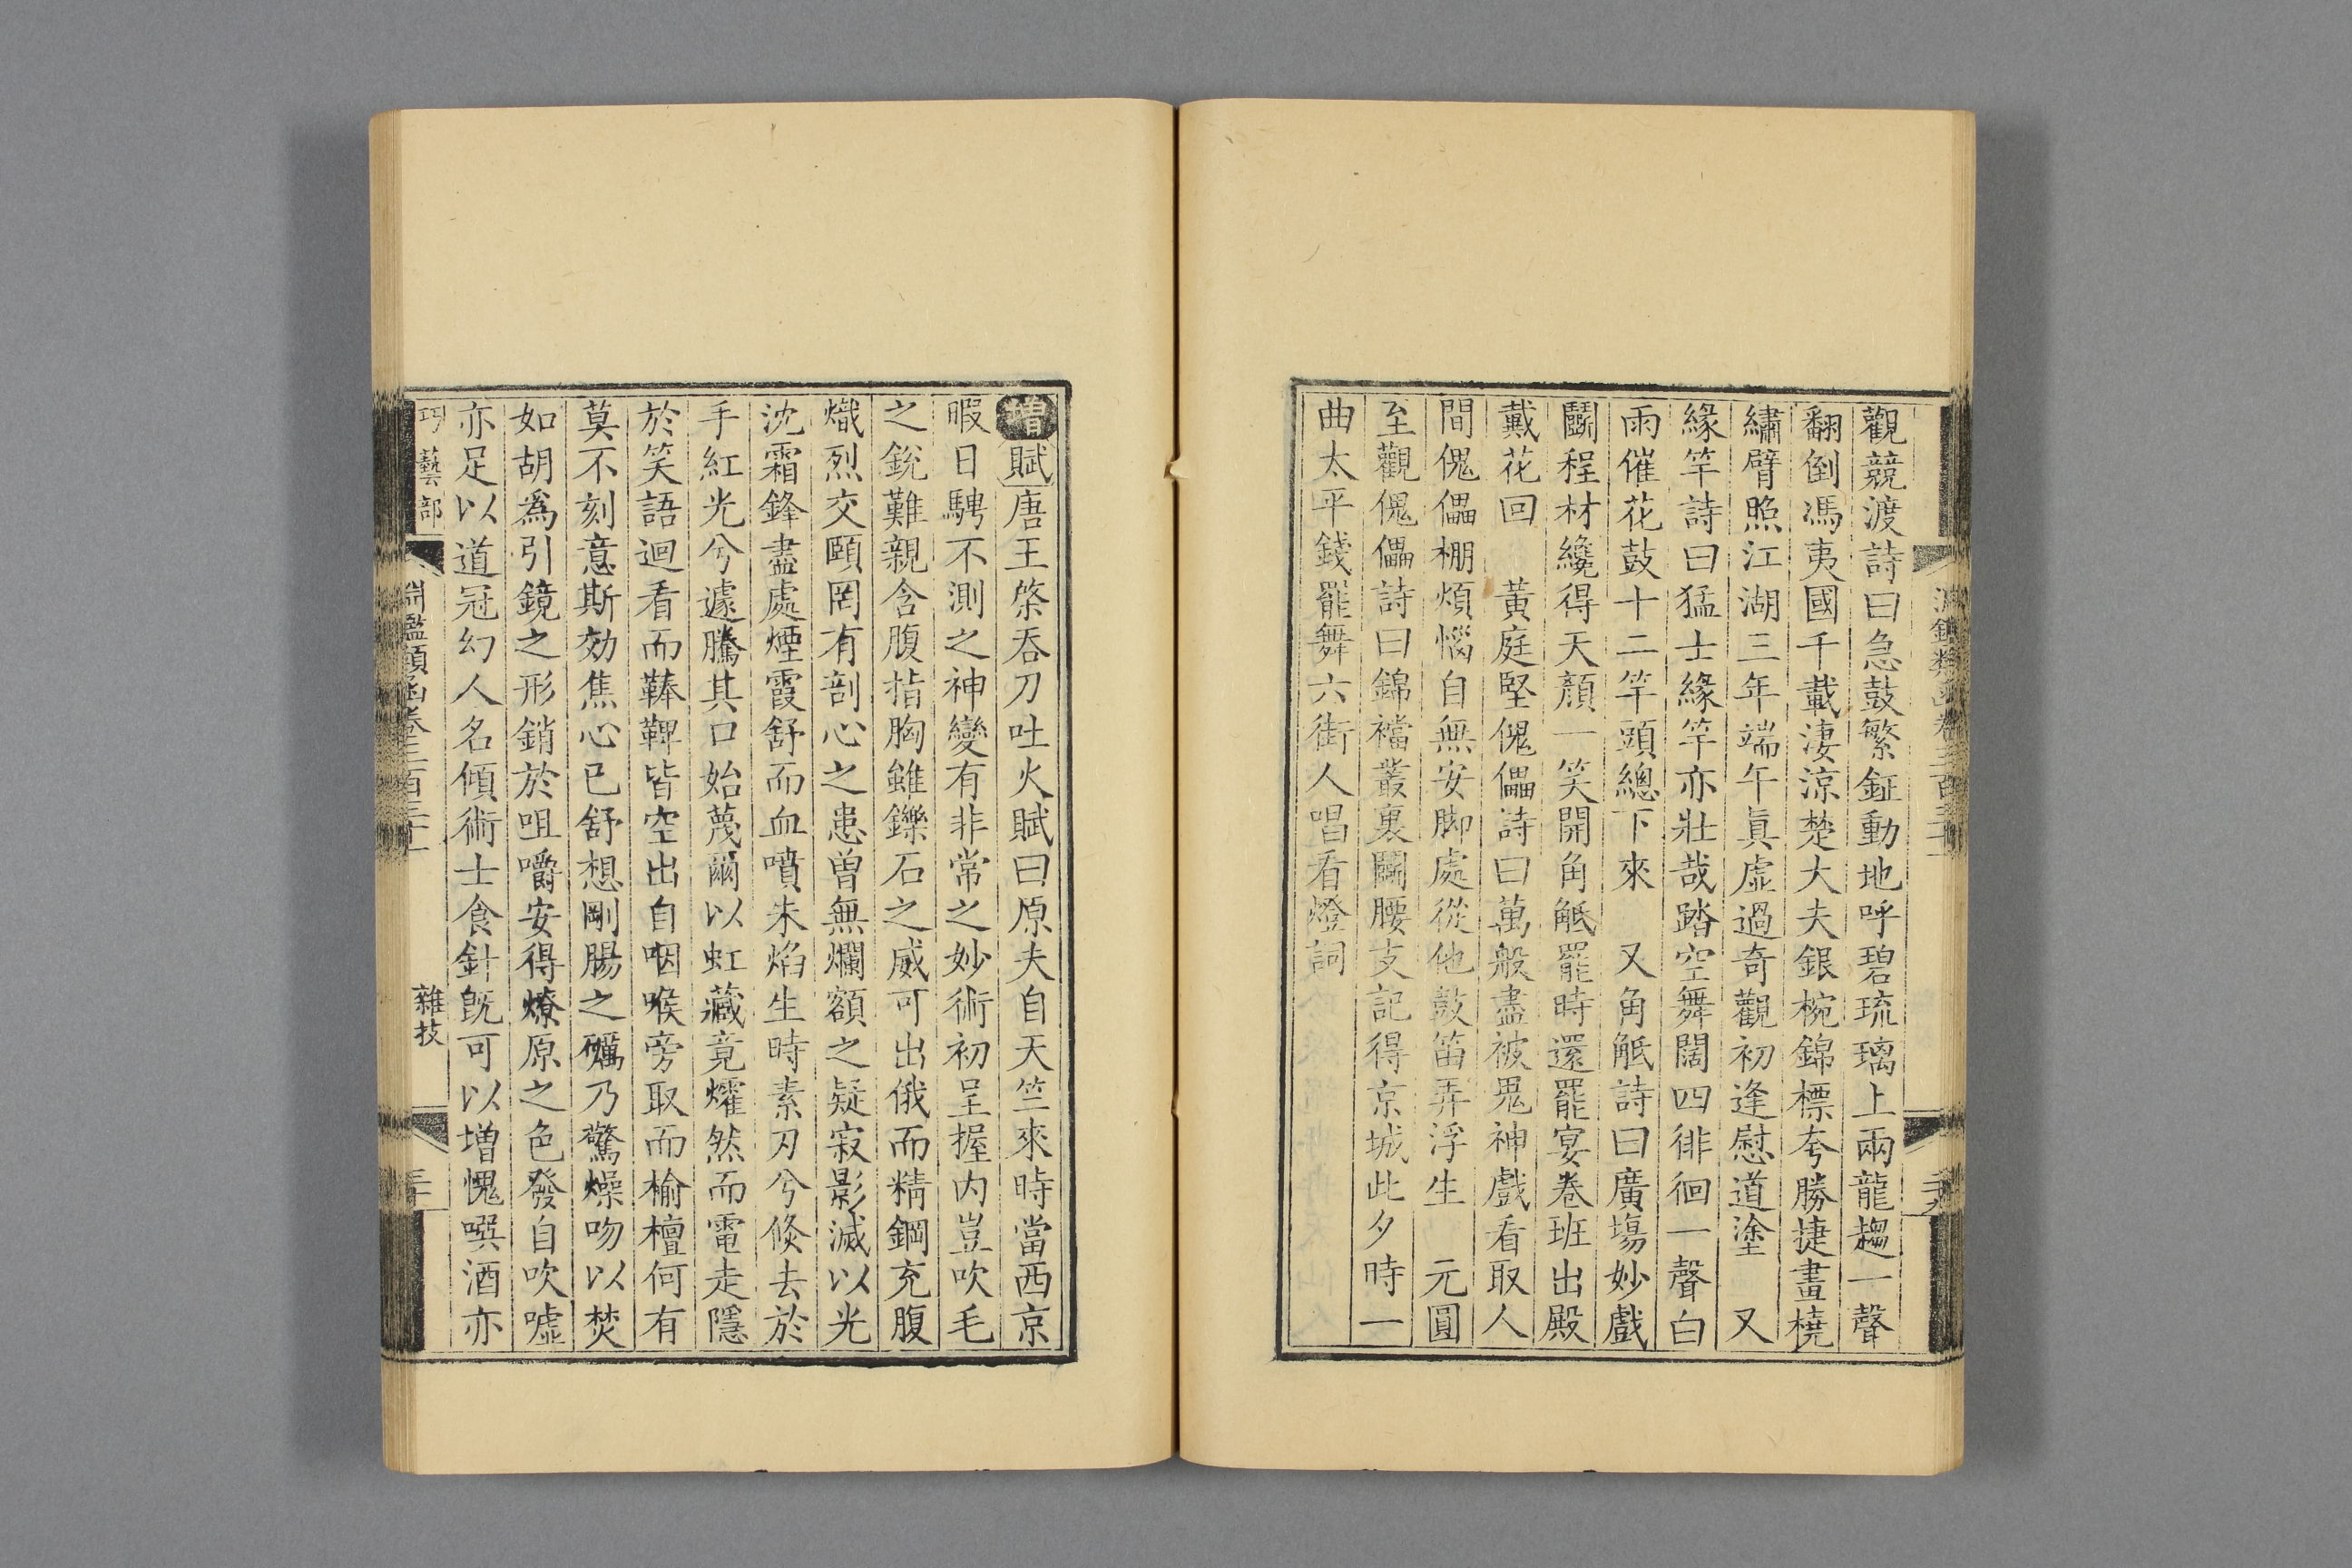 觀競渡詩曰急鼓繁鉦動地呼碧琉璃上兩龍趨一聲
翻倒馮夷國千載淒涼楚大夫銀椀錦標夸勝捷畫橈
繡臂照江湖三年端午眞虛過奇觀初逢慰道塗　又
緣竿詩曰猛士緣竿亦壯哉踏空舞闊四徘徊一聲白
雨催花鼓十二竿頭總下來　又角觝詩曰廣塲妙戲
鬬程材纔得天顏一笑開角觝罷時還罷宴卷班出殿
戴花回　黃庭堅傀儡詩曰萬般盡被鬼神戲看取人
間傀儡棚煩惱自無安脚處從他鼓笛弄浮生　元圓
至觀傀儡詩曰錦襠叢裏鬬腰支記得京城此夕時一
曲太平錢罷舞六街人唱看燈詞
增賦唐王棨吞刀吐火賦曰原夫自天竺來時當西京
暇日騁不測之神變有非常之妙術初呈握内豈吹毛
之銳難親含腹指胸雖鑠石之威可出俄而精鋼充腹
熾烈交頤罔有剖心之患曽無爛額之疑寂影滅以光
沈霜鋒盡處煙霞舒而血噴朱焰生時素刃兮倐去於
手紅光兮遽騰其口始蔑爾以虹藏竟爟然而電走隱
於笑語迴看而鞛鞞皆空出自咽喉旁取而榆檀何有
莫不刻意斯効焦心已舒想剛腸之礪乃驚燥吻以焚
如胡爲引鏡之形銷於咀嚼安得燎原之色發自吹噓
亦足以道冠幻人名傾術士食針旣可以増愧噀酒亦
巧藝部
淵鑑類函卷三百三十
雜技
三十